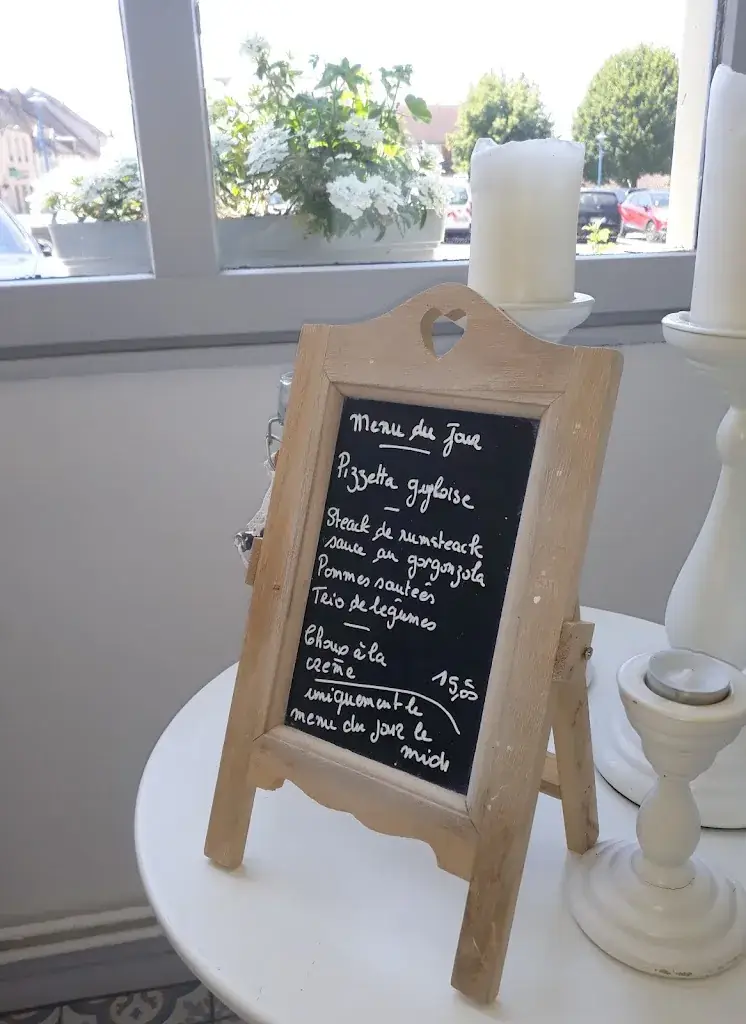 Menu du Jour
Pizzetta gugloise
Steack de rumsteack
sauce au gorgonzola
Pommes sautées
Trio de légumes
Choux à la
crème
15,00
uniquement le
menu du jour le
midi